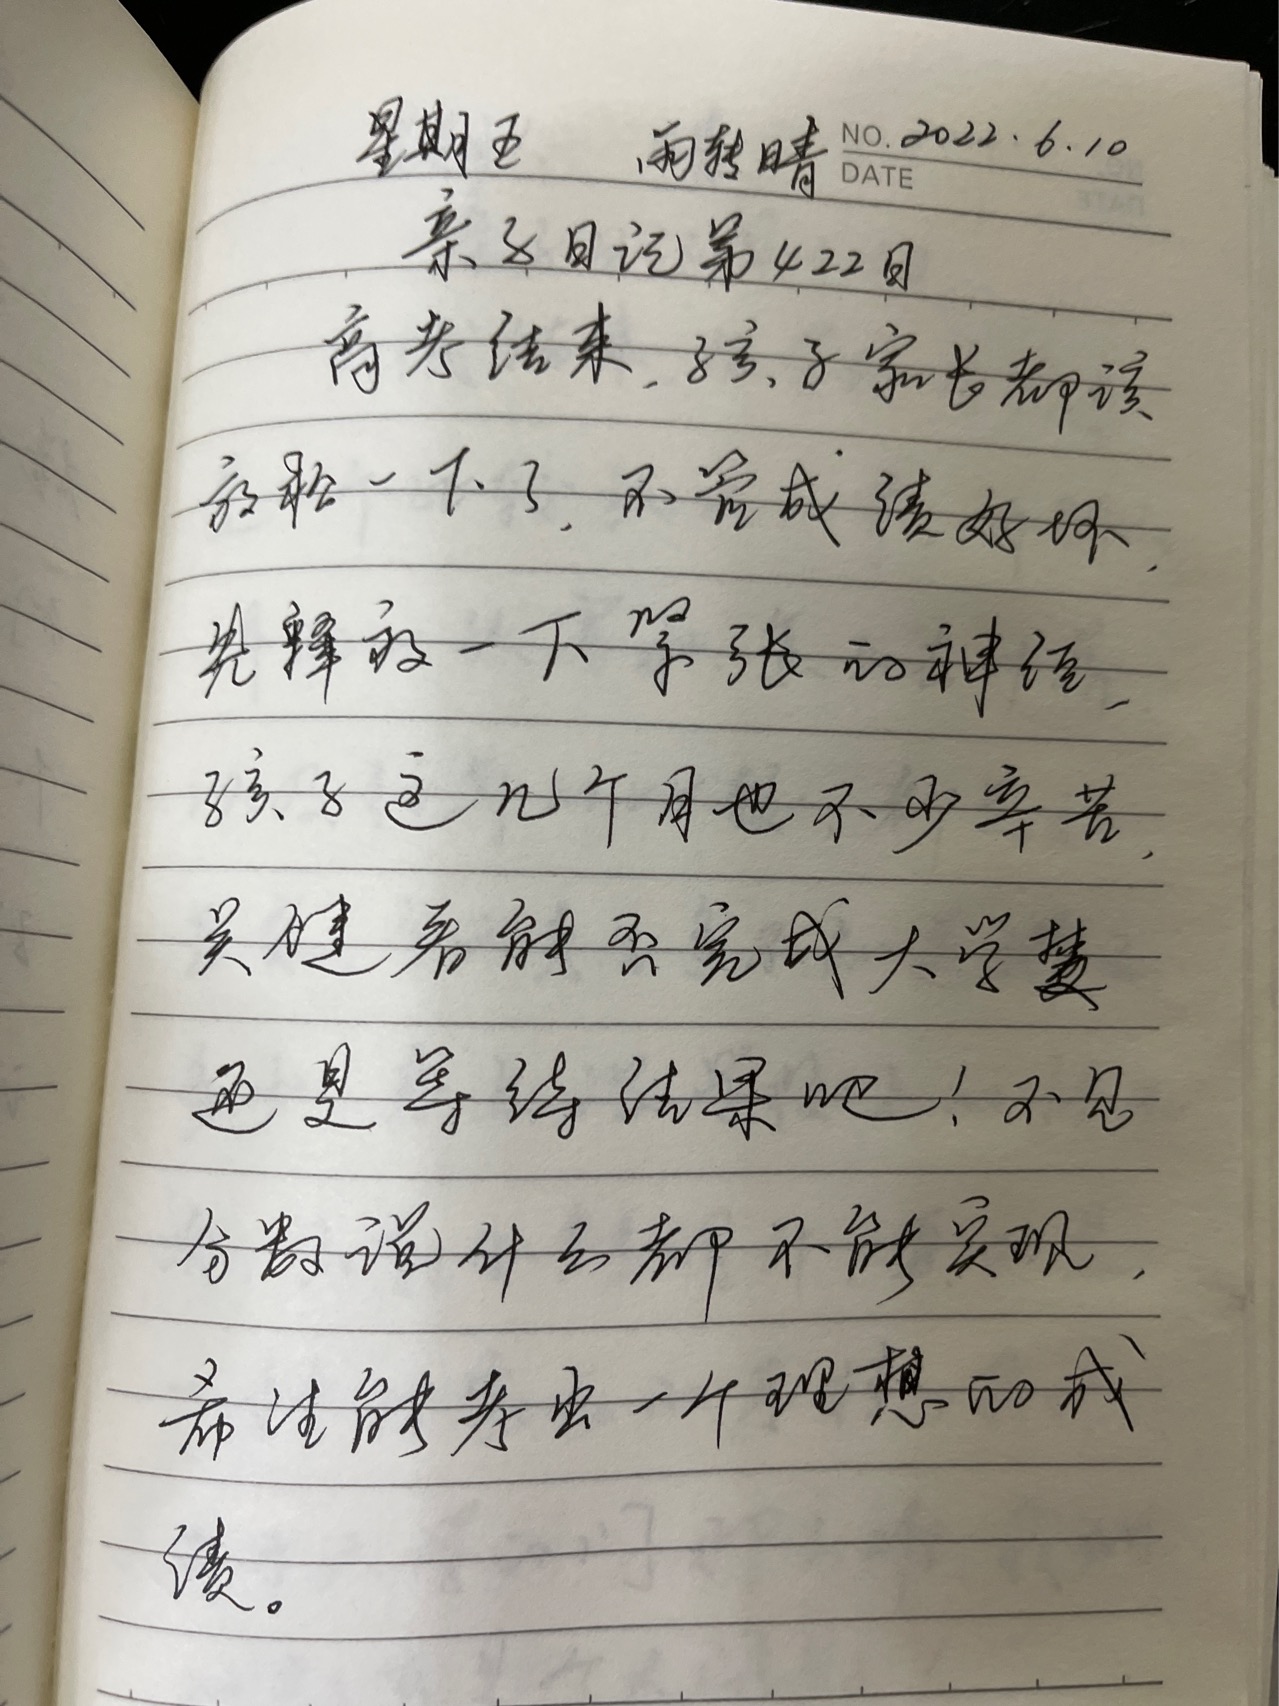 星期五 雨转晴 NO. 2022.6.10
DATE
亲子日记第422日
高考结束,孩子家长都该
放松一下了,不管成绩好坏,
先释放一下紧张的神经,
孩子这几个月也不少辛苦,
关键看能否完成大学梦
还是等待结果吧!不见
分数说什么都不能实现,
希望能考出一个理想的成
绩。